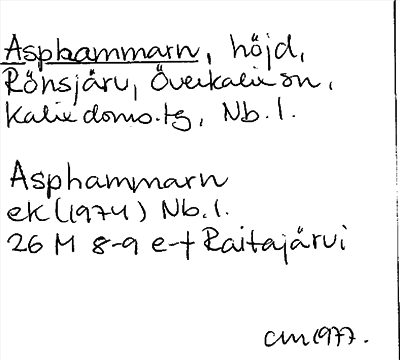 Asphammarn, höjd,
Rönsjärv, Överkalix sn,
Kalix doms.tg, Nb.l.
Asphammarn
ek (1974) Nb.l.
26 M 8-9 e-f Raitajärvi
cm 1977.